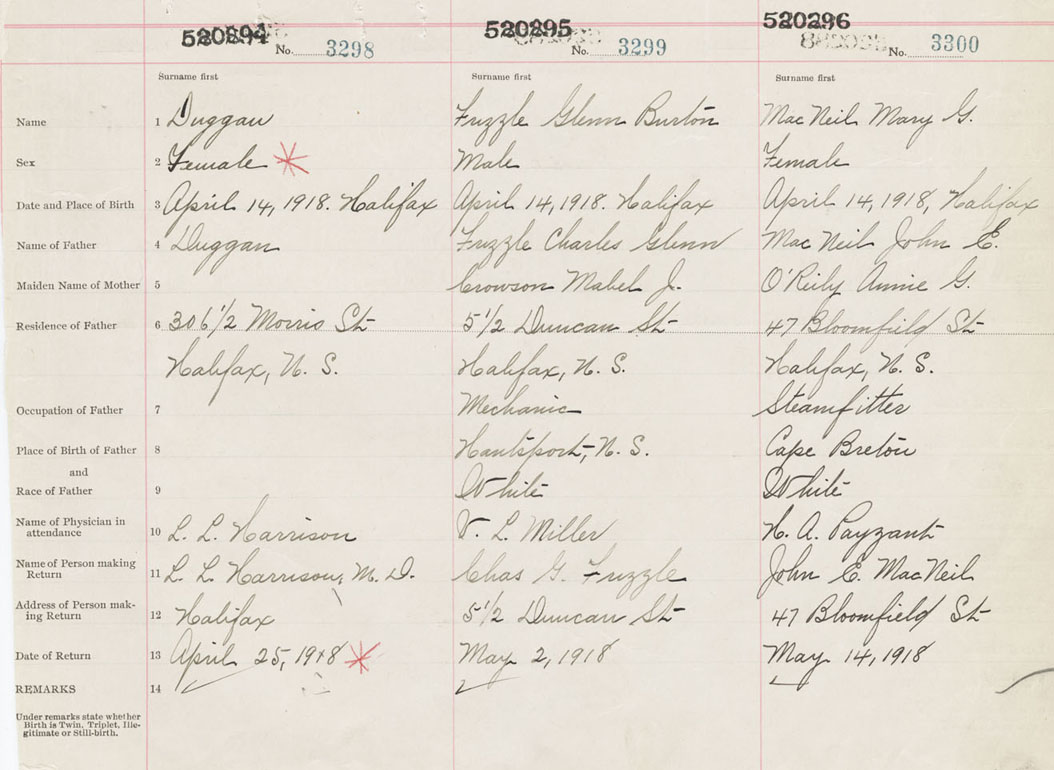 520294 520295 520296
No. 3298 No. 3299 No. 3300
Surname first Surname first Surname first
Name 1 Duggan Fuzzle Glenn Burton Mac Neil Mary G.
Sex 2 Female Male Female
Date and Place of Birth 3 April 14, 1918. Halifax April 14, 1918. Halifax April 14, 1918, Halifax
Name of Father 4 Duggan Fuzzle Charles Glenn Mac Neil John E.
Maiden Name of Mother 5 Crowson Mabel J. O'Reily Annie G.
Residence of Father 6 306 1/2 Morris St 5 1/2 Duncan St 47 Bloomfield St
Halifax, N. S. Halifax, N. S. Halifax, N. S.
Occupation of Father 7 Mechanic Steamfitter
Place of Birth of Father 8 Hantsport, N. S. Cape Breton
and
Race of Father 9 White White
Name of Physician in
attendance 10 L. L. Harrison V. L. Miller H. A. Payzant
Name of Person making
Return 11 L. L. Harrison, M. D. Chas G. Fuzzle John E. MacNeil
Address of Person mak-
ing Return 12 Halifax 5 1/2 Duncan St 47 Bloomfield St
Date of Return 13 April 25, 1918 May 2, 1918 May 14, 1918
REMARKS 14
Under remarks state whether
Birth is Twin, Triplet, Ille-
gitimate or Still-birth.